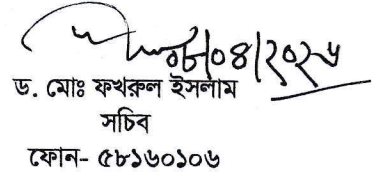 ০৮/০৪/২০২৬
ড. মোঃ ফখরুল ইসলাম
সচিব
ফোন- ৫৮১৬০১০৬